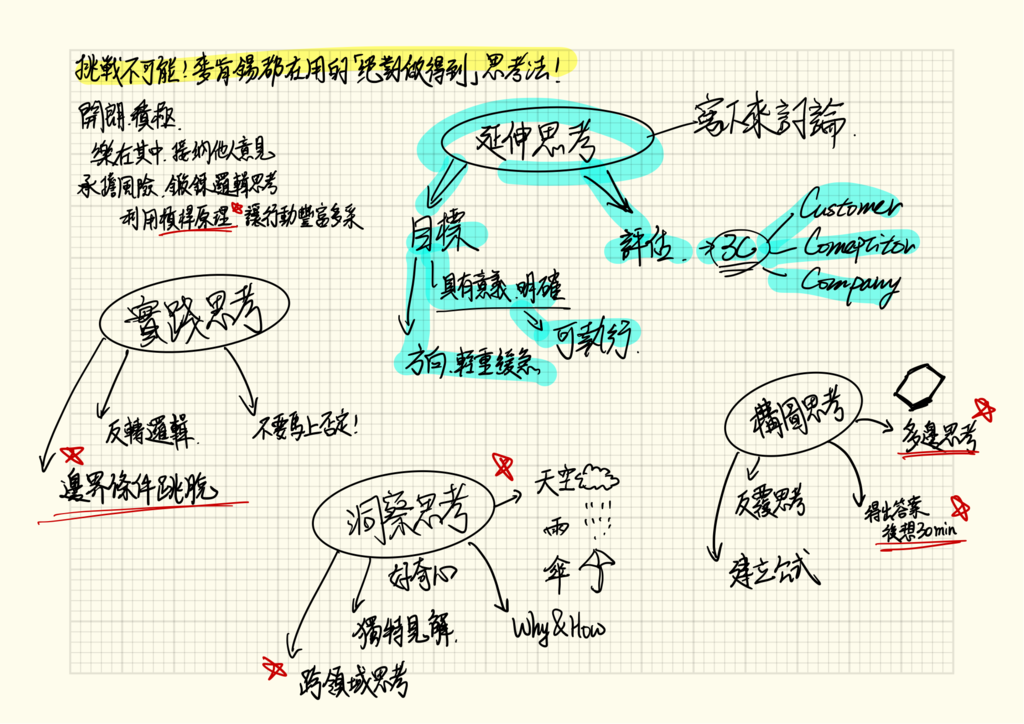 挑戰不可能！麥肯錫都在用的「絕對做得到」思考法！
開朗．積極．
樂在其中．接納他人意見
承擔風險．鍛鍊邏輯思考
利用槓桿原理 讓行動豐富多采
延伸思考
寫下來討論．
目標
具有意義．明確
可執行．
方向．輕重緩急．
評估．
3C
Customer
Comeptitor
Company
實踐思考
反轉邏輯．
不要馬上否定！
邊界條件跳脫
洞察思考
天空
雨
傘
好奇心
獨特見解．
Why&How
跨領域思考
構圖思考
多邊思考
反覆思考
得出答案
後想30min
建立公式